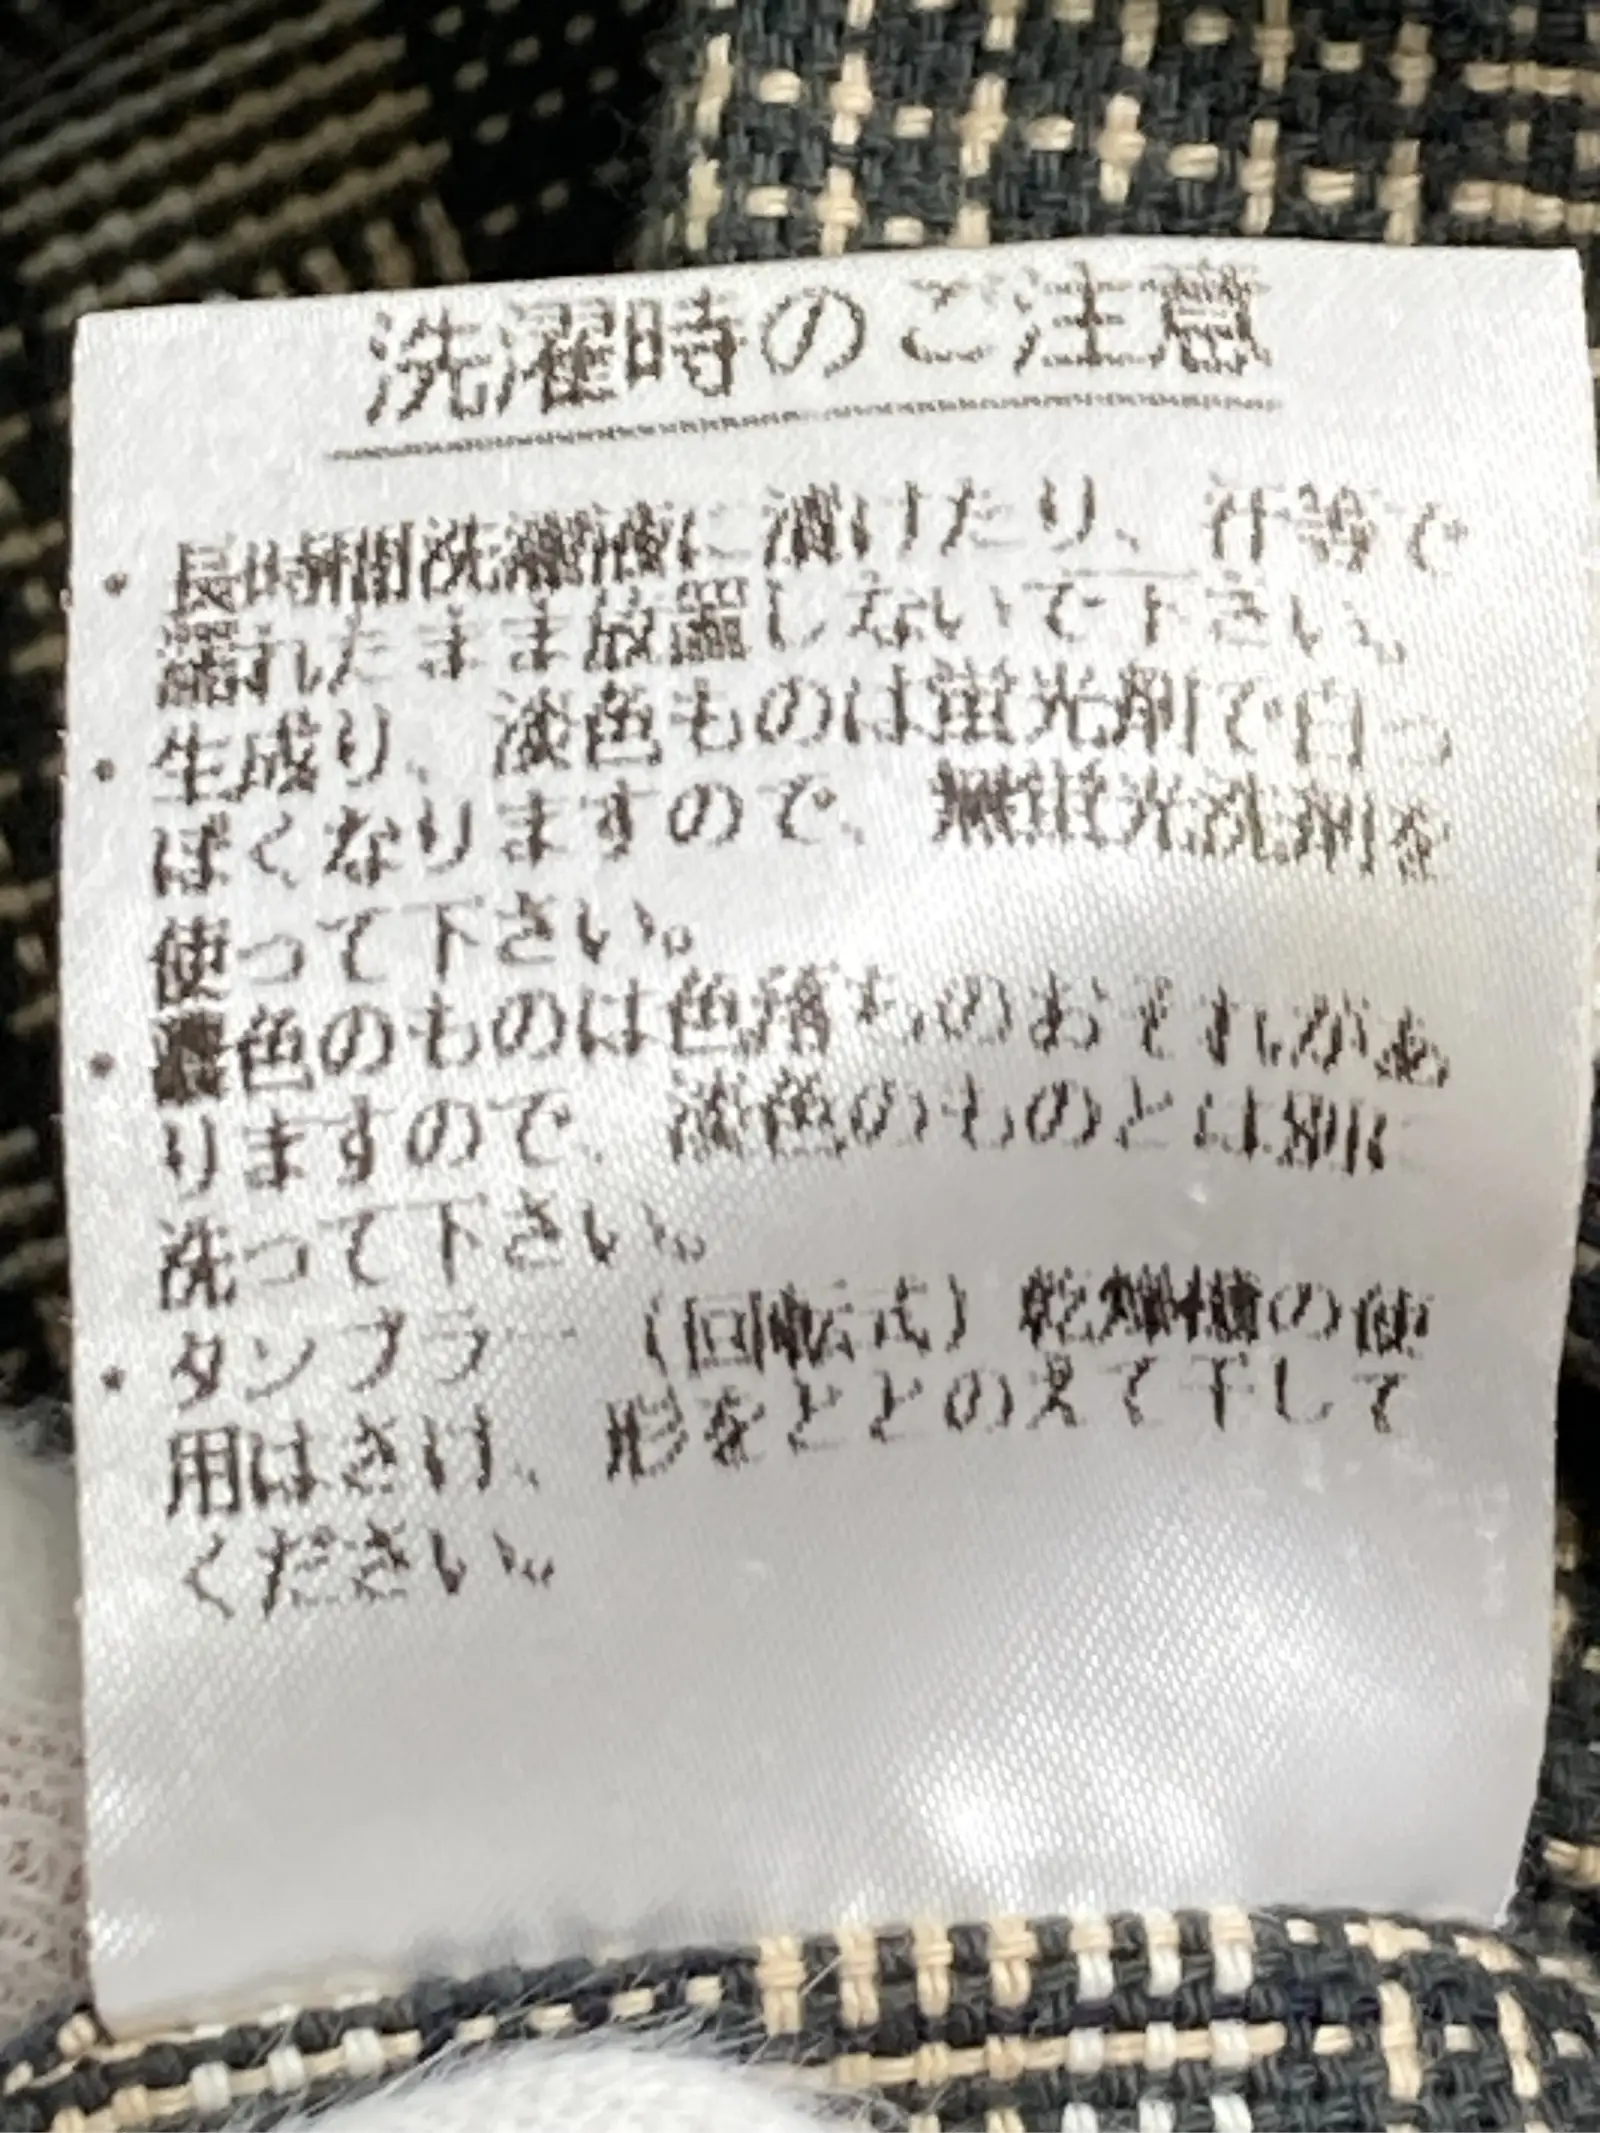 洗濯時のご注意
・長時間洗濯液に漬けたり、汗等で
濡れたまま放置しないで下さい。
・生成り、淡色ものは蛍光剤で白っ
ぽくなりますので、無蛍光洗剤を
使って下さい。
・濃色のものは色落ちのおそれがあ
りますので、淡色のものとは別に
洗って下さい。
・タンブラー（回転式）乾燥機の使
用はさけ、形をととのえて干して
ください。